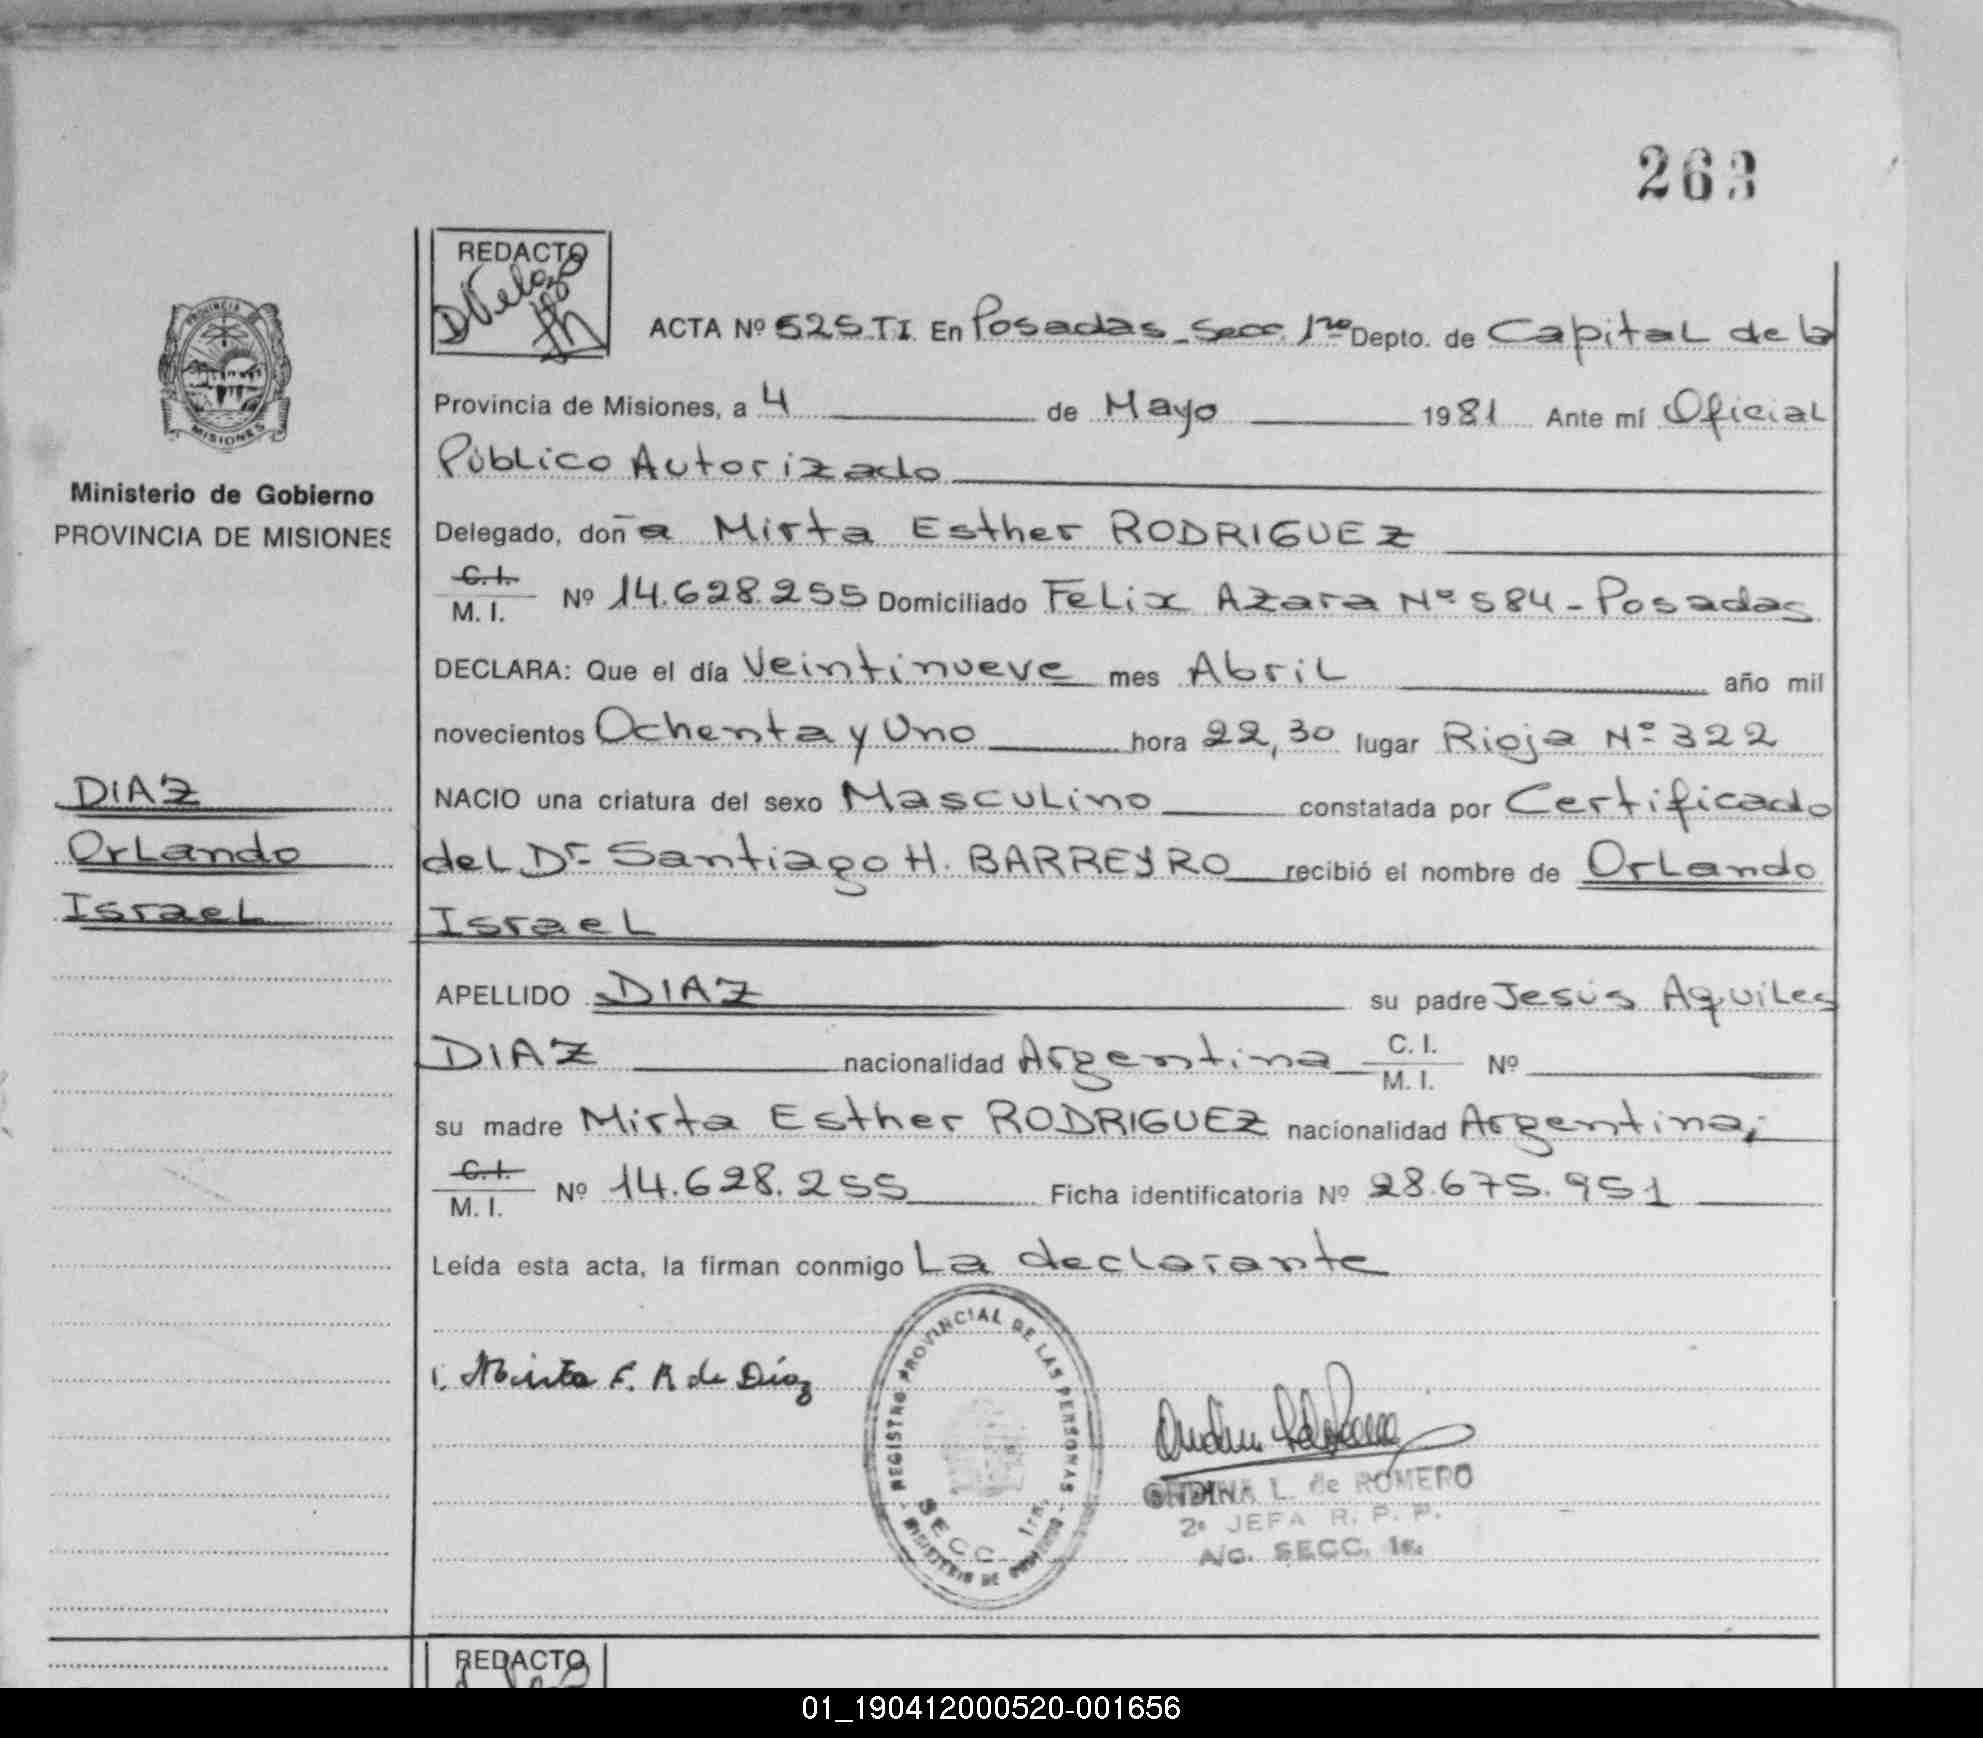 263
REDACTO
PROVINCIA
MISIONES
Ministerio de Gobierno
PROVINCIA DE MISIONES
ACTA Nº 525 T I. En Posadas - Secc. 1ra Depto. de Capital de la
Provincia de Misiones, a 4 de Mayo 1981 Ante mí Oficial
Público Autorizado
Delegado, doña Mirta Esther RODRIGUEZ
C.I. M. I. Nº 14.628.255 Domiciliado Felix Azara Nº 584 - Posadas
DECLARA: Que el día Veintinueve mes Abril año mil
novecientos Ochenta y Uno hora 22,30 lugar Rioja Nº 322
NACIO una criatura del sexo Masculino constatada por Certificado
del Dr. Santiago H. BARREYRO recibió el nombre de Orlando
Israel
DIAZ
Orlando
Israel
APELLIDO DIAZ su padre Jesús Aquiles
DIAZ nacionalidad Argentina C. I. M. I. Nº
su madre Mirta Esther RODRIGUEZ nacionalidad Argentina,
C.I. M. I. Nº 14.628.255 Ficha identificatoria Nº 28.675.951
Leída esta acta, la firman conmigo La declarante
Mirta E. R de Díaz
REGISTRO PROVINCIAL DE LAS PERSONAS
SECC. 1ra.
MINISTERIO DE GOBIERNO
ONDINA L. de ROMERO
2º JEFA R. P. P.
A/c. SECC. 1ra.
REDACTO
01_190412000520-001656